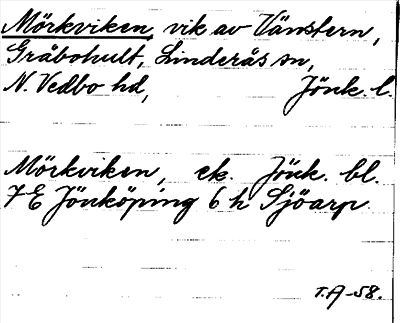 Mörkviken, vik av Vänstern,
Gråbohult, Linderås sn,
N. Vedbo hd, Jönk. l.
Mörkviken, ek. Jönk. bl.
7E Jönköping 6 h Sjöarp.
T.A -58.